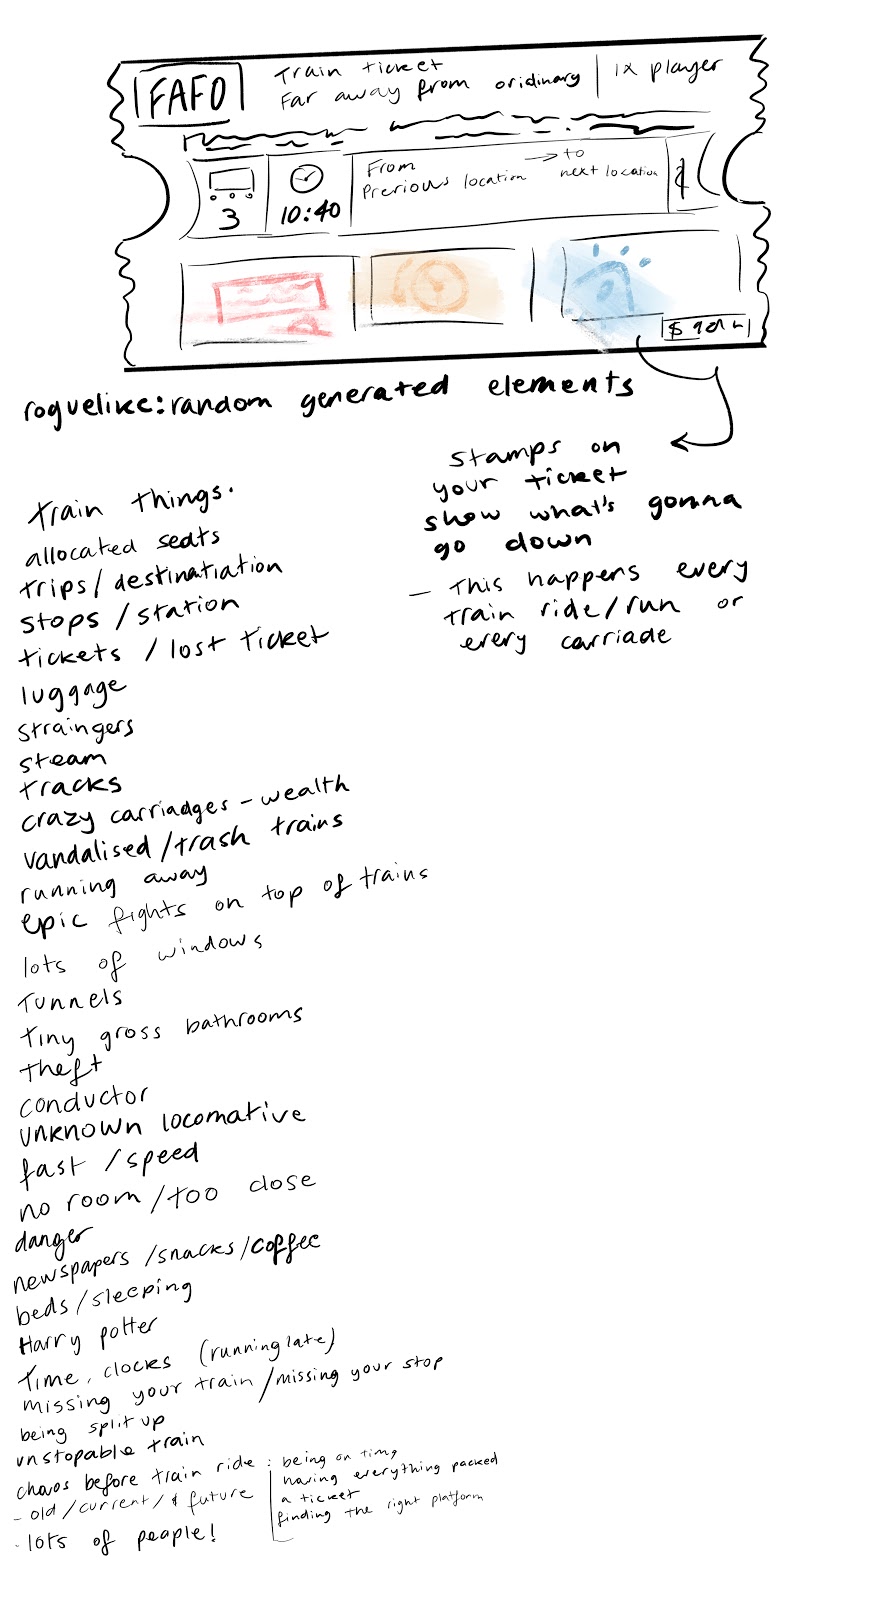 FAFO
Train ticket
Far away from oridinary
1x player
3
10:40
From
Previous location → to
next location
roguelike: random generated elements
Stamps on
your ticket
show what's gonna
go down
- This happens every
train ride/run or
every carriade
train things.
allocated seats
trips/destinatiation
stops/station
tickets / lost ticket
luggage
straingers
steam
tracks
crazy carriadges - wealth
vandalised/trash trains
running away
epic fights on top of trains
lots of windows
Tunnels
tiny gross bathrooms
theft
conductor
unknown locomative
fast /speed
no room/too close
danger
newspapers /snacks/coffee
beds/sleeping
Harry potter
Time, clocks (running late)
missing your train/missing your stop
being split up
unstopable train
chaos before train ride : being on time
having everything packed
a ticket
finding the right platform
- old/current/& future
. lots of people!